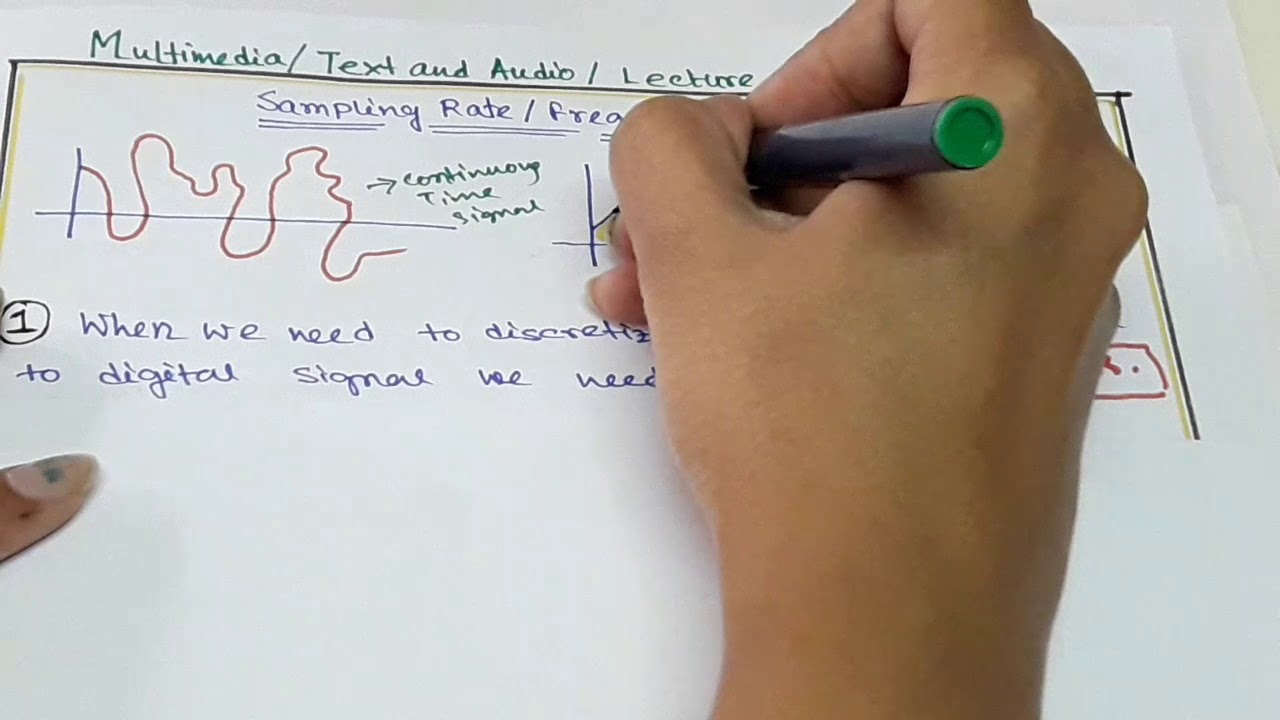 Multimedia/ Text and Audio/ Lecture
Sampling Rate/
continuous
Time
signal
1 When we need to
to digital signal we need